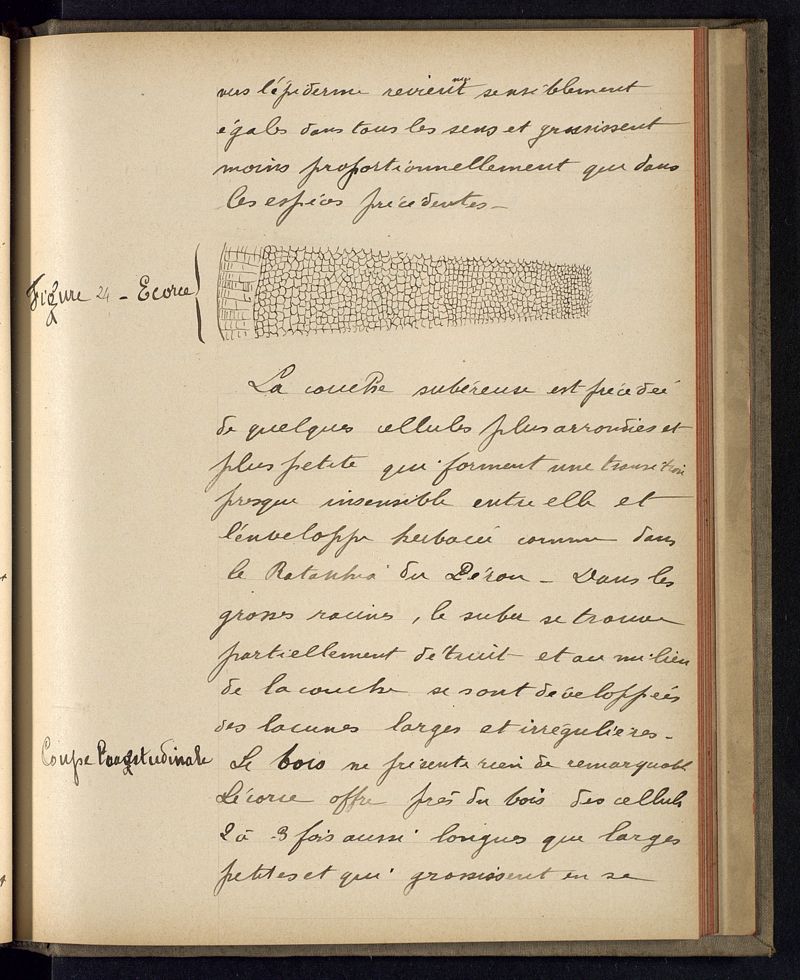 vers l'épiderme reviennent sensiblement
égales dans tous les sens et grossissent
moins proportionnellement que dans
les espèces précédentes -
Figure 24 - Ecorce
La couche subéreuse est précédée
de quelques cellules plus arrondies et
plus petite qui forment une transition
presque insensible entre elle et
l'enveloppe herbacée comme dans
le Ratanhia du Pérou - Dans les
grosses racines, le suber se trouve
partiellement détruit et au milieu
de la couche se sont développées
des lacunes larges et irrégulières -
Coupe Longitudinale
Le bois ne présente rien de remarquable
L'écorce offre près du bois des cellules
2 à 3 fois aussi longues que larges
petites et qui grossissent en se